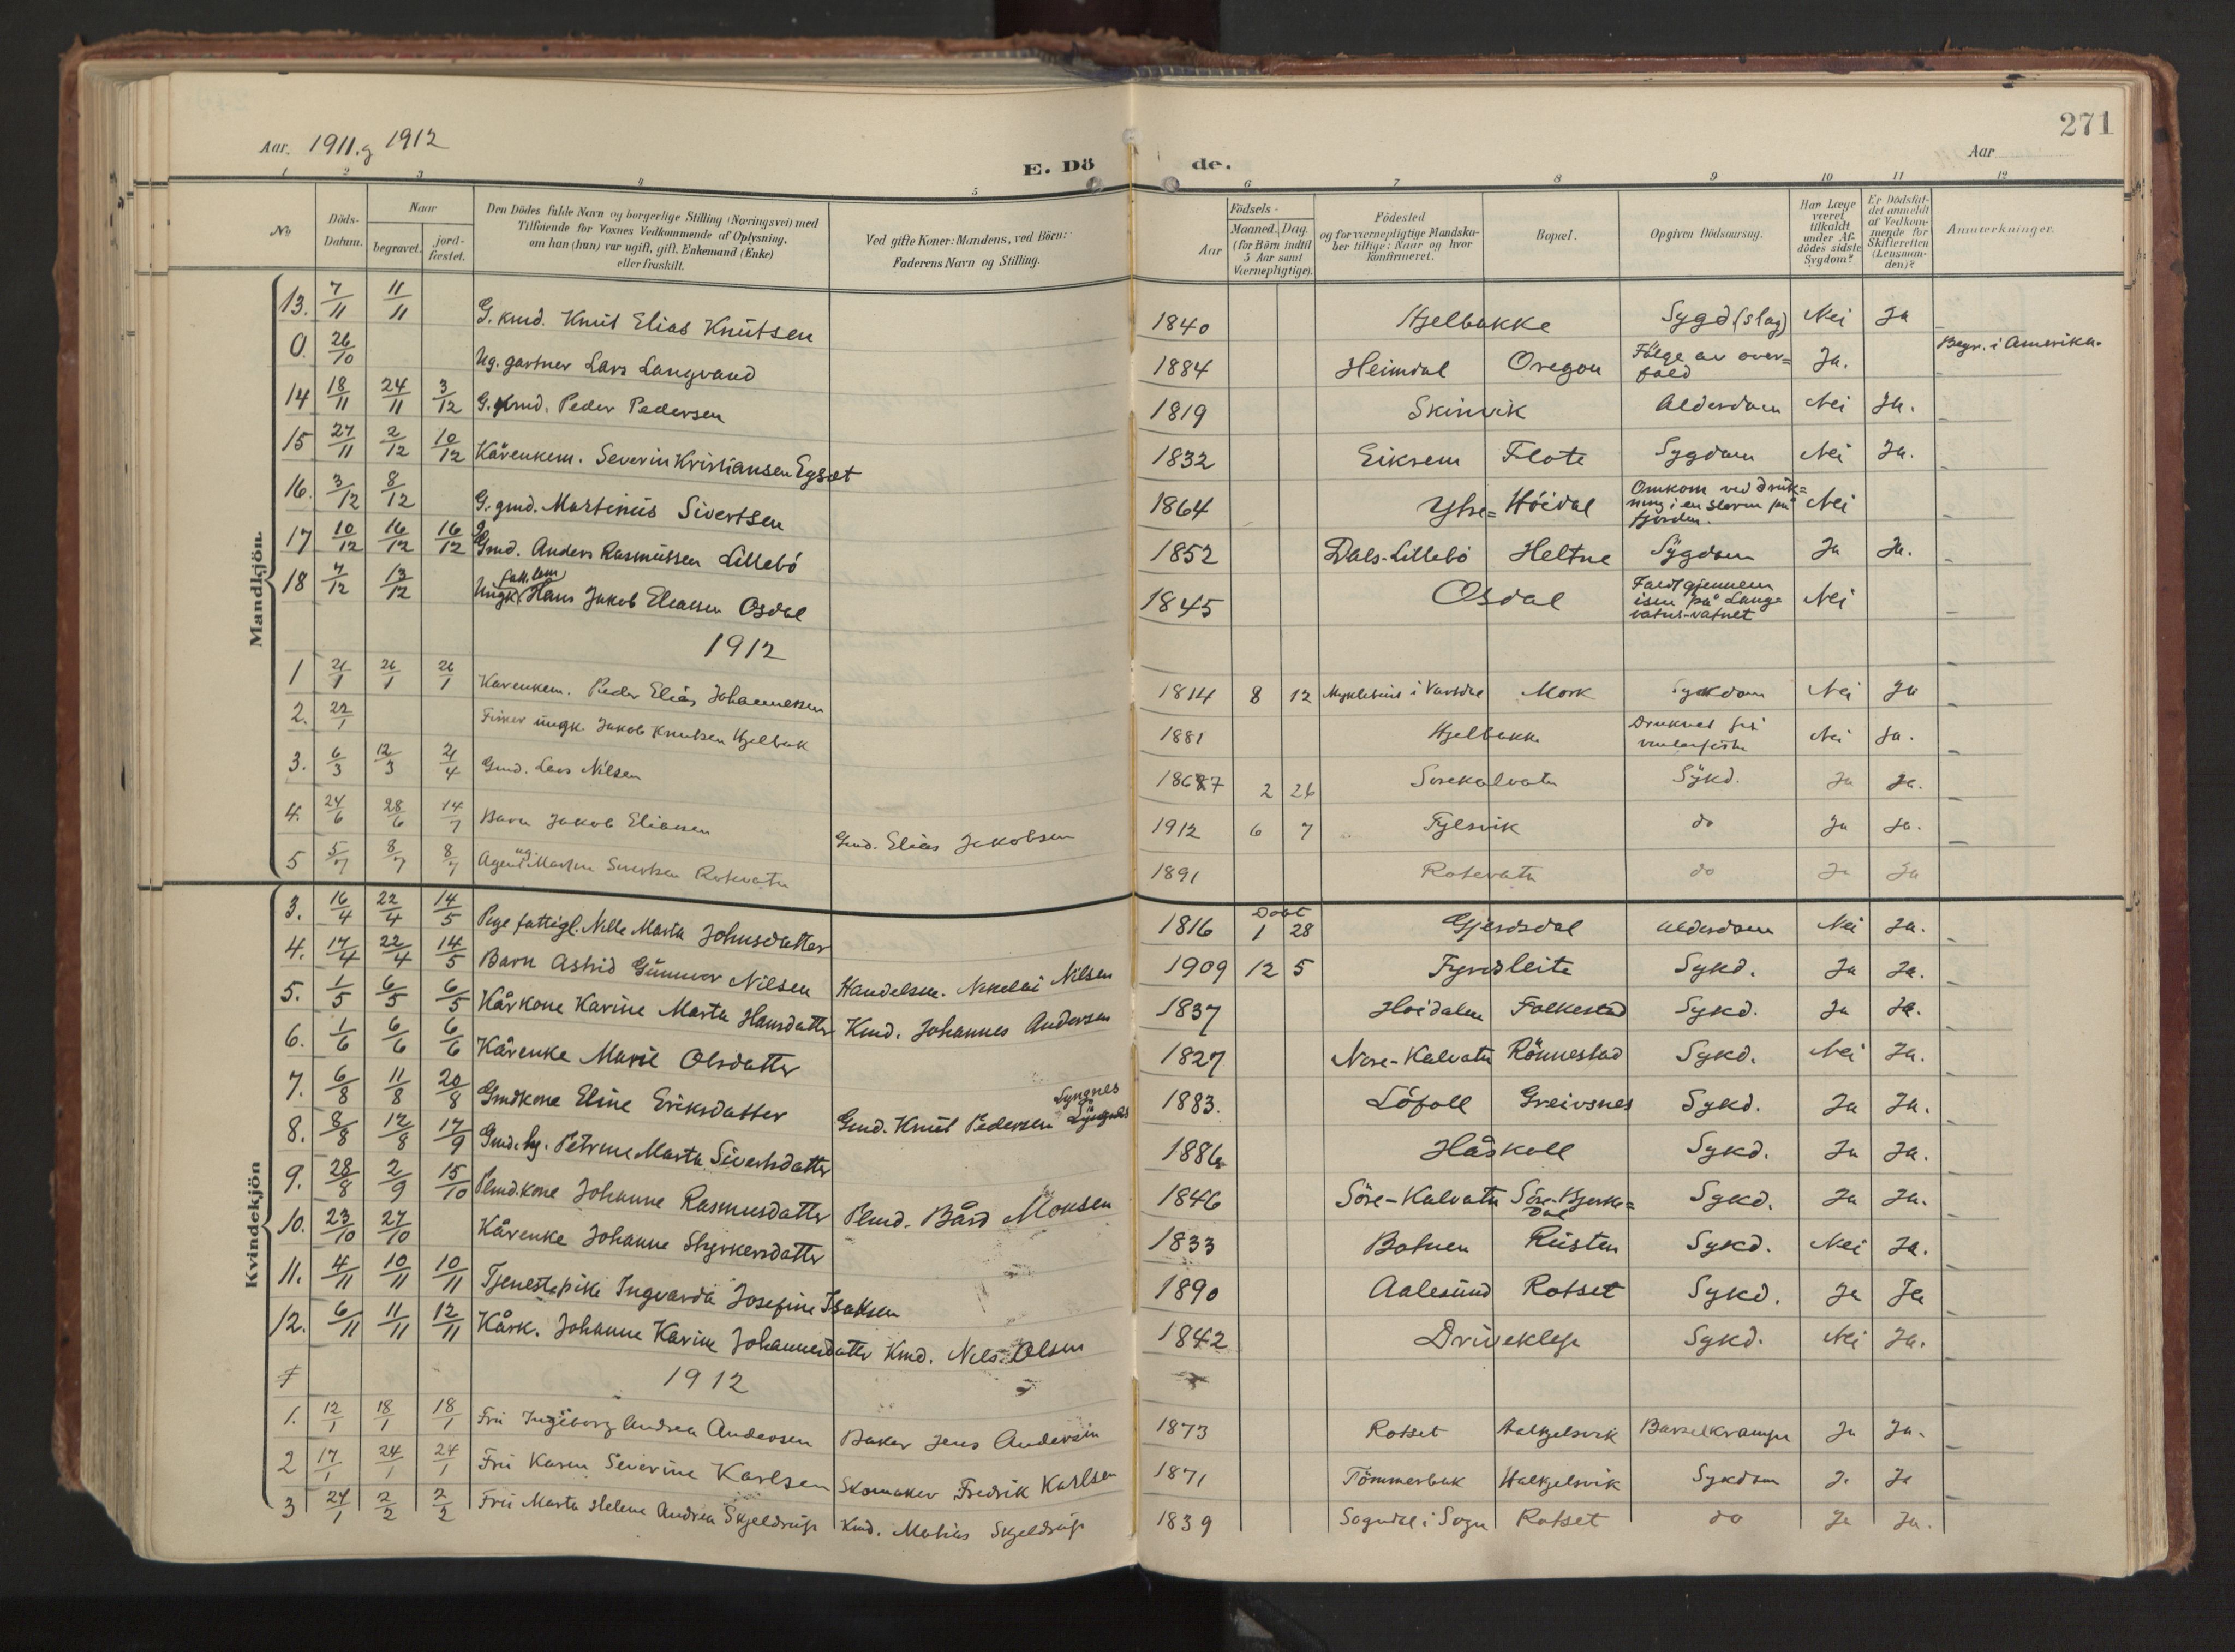 271
Aar. 1911 og 1912
E. Dö de.
Aar
1 2 3 4 5 6 7 8 9 10 11 12
No.
Döds-Datum.
Naar
begravet. jord-fæstet.
Den Dödes fulde Navn og borgerlige Stilling (Næringsvei) med
Tilföiende for Voxnes Vedkommende af Oplysning,
om han (hun) var ugift, gift, Enkemand (Enke)
eller fraskilt.
Ved gifte Koner: Mandens, ved Börn:
Faderens Navn og Stilling.
Födsels-
Aar
Maaned. Dag.
(for Börn indtil
5 Aar samt
Værnepligtige).
Födested
og for værnepligtige Mandska-
ber tillige: Naar og hvor
konfirmeret.
Bopæl.
Opgiven Dödsaarsag.
Har Læge
været
tilkaldt
under Af-
dödes sidste
Sygdom?
Er Dödsfal-
det anmeldt
af Vedkom-
mende for
Skifteretten
(Lensman-
den)?
Anmærkninger.
Mandkjön.
13. 7/11 11/11 G. kmd. Knut Elias Knutsen 1840 Hjelbakke Sygd (slag) Nei Ja
0. 26/10 Ug. gartner Lars Langvand 1884 Heimdal Oregon Fölge av over=fald Ja. Begr. i Amerika.
14 18/11 24/11 3/12 G. kmd. Peder Pedersen 1819 Skinvik Alderdom Nei Ja.
15 27/11 2/12 10/12 Kårenkem. Severin Kristiansen Egset 1832 Eiksem Flote Sygdom Nei Ja.
16. 3/12 8/12 G. gmd. Martinus Sivertsen 1864 Ytre=Höidal Omkom ved druk=ning i en storm på fjorden. Nei
17 10/12 16/12 16/12 g Gmd. Anders Rasmussen Lillebö 1852 Dals-Lillebö Heltne Sygdom Ja Ja.
18 7/12 13/12 Ungk. fatt. lem Hans Jakob Eliassen Osdal 1845 Osdal Faldt gjennem isen på Lange vatns-vatnet Nei
1912
1 21/1 26/1 26/1 Kårenkem. Peder Elias Johannessen 1814 8 12 Myklebust i Vartdal Mork Sykdom Nei Ja
2. 22/1 Fisker ungk. Jakob Knutsen Hjelbak 1881 Hjelbakke Druknet på vinterfiske Nei Ja.
3. 6/3 12/3 21/4 Gmd. Lars Nilsen 1867 2 26 Sørekalvatn Sykd. Ja Ja.
4. 24/6 28/6 14/7 Barn Jakob Eliassen Gmd. Elias Jakobsen 1912 6 7 Fylsvik do Ja Ja.
5 5/7 8/7 8/7 Agent ug. Martin Sivertsen Rotevatn 1891 Rotevatn do Ja Ja
Kvindekjön
3. 16/4 22/4 14/5 Pige fattigl. Nille Marta Johnsdatter 1816 Døbt 1 28 Gjerdsdal Alderdom Nei Ja.
4. 17/4 22/4 14/5 Barn Astrid Gunnvor Nilsen Handelsm. Nikolai Nilsen 1909 12 5 Fyrdsleite Sykd. Ja Ja.
5. 1/5 6/5 6/5 Kårkone Karine Marta Hansdatter Kmd. Johannes Andersen 1837 Høidalen Folkestad Sykd. Ja Ja.
6. 1/6 6/6 6/6 Kårenke Marie Olsdatter 1827 Nore-Kalvatn Rönnestad Sykd. Nei Ja.
7. 6/8 11/8 20/8 Gmdkone Eline Eriksdatter Gmd. Knut Pedersen Lyngnes 1883. Löfoll Greivsnes Sykd. Ja Ja.
8. 8/8 12/8 17/9 Gmd. ug. Petrine Marta Sivertsdatter 1886 Håskoll Sykd. Ja Ja.
9. 28/8 2/9 15/10 Plmd.kone Johanne Rasmusdatter Plmd. Bård Monsen 1846 Söre-Kalvatn Söre-Bjerke=dal Sykd. Ja Ja.
10. 23/10 27/10 Kårenke Johanne Styrkersdatter 1833 Botnen Riisten Sykd. Nei Ja.
11. 4/11 10/11 10/11 Tjenestepike Ingvarda Josefine Isaksen 1890 Aalesund Rotset Sykd. Ja Ja
12. 6/11 11/11 12/11 Kårk. Johanne Karine Johannesdatter Kmd. Nils Olsen 1842 Driveklep Sykd. Nei Ja.
1912
1. 12/1 18/1 18/1 Fru Ingeborg Andrea Andersen Baker Jens Andersen 1873 Rotset Halkjelsvik Barselkrampe Ja Ja.
2 17/1 24/1 24/1 Fru Karen Severine Karlsen Skomaker Fredrik Karlsen 1871 Tömmerbak Halkjelsvik Sykdom Ja Ja
3 24/1 2/2 2/2 Fru Marta Helene Andrea Skjeldrup Kmd. Matias Skjeldrup 1839 Sogndal i Sogn Rotset do Ja Ja.